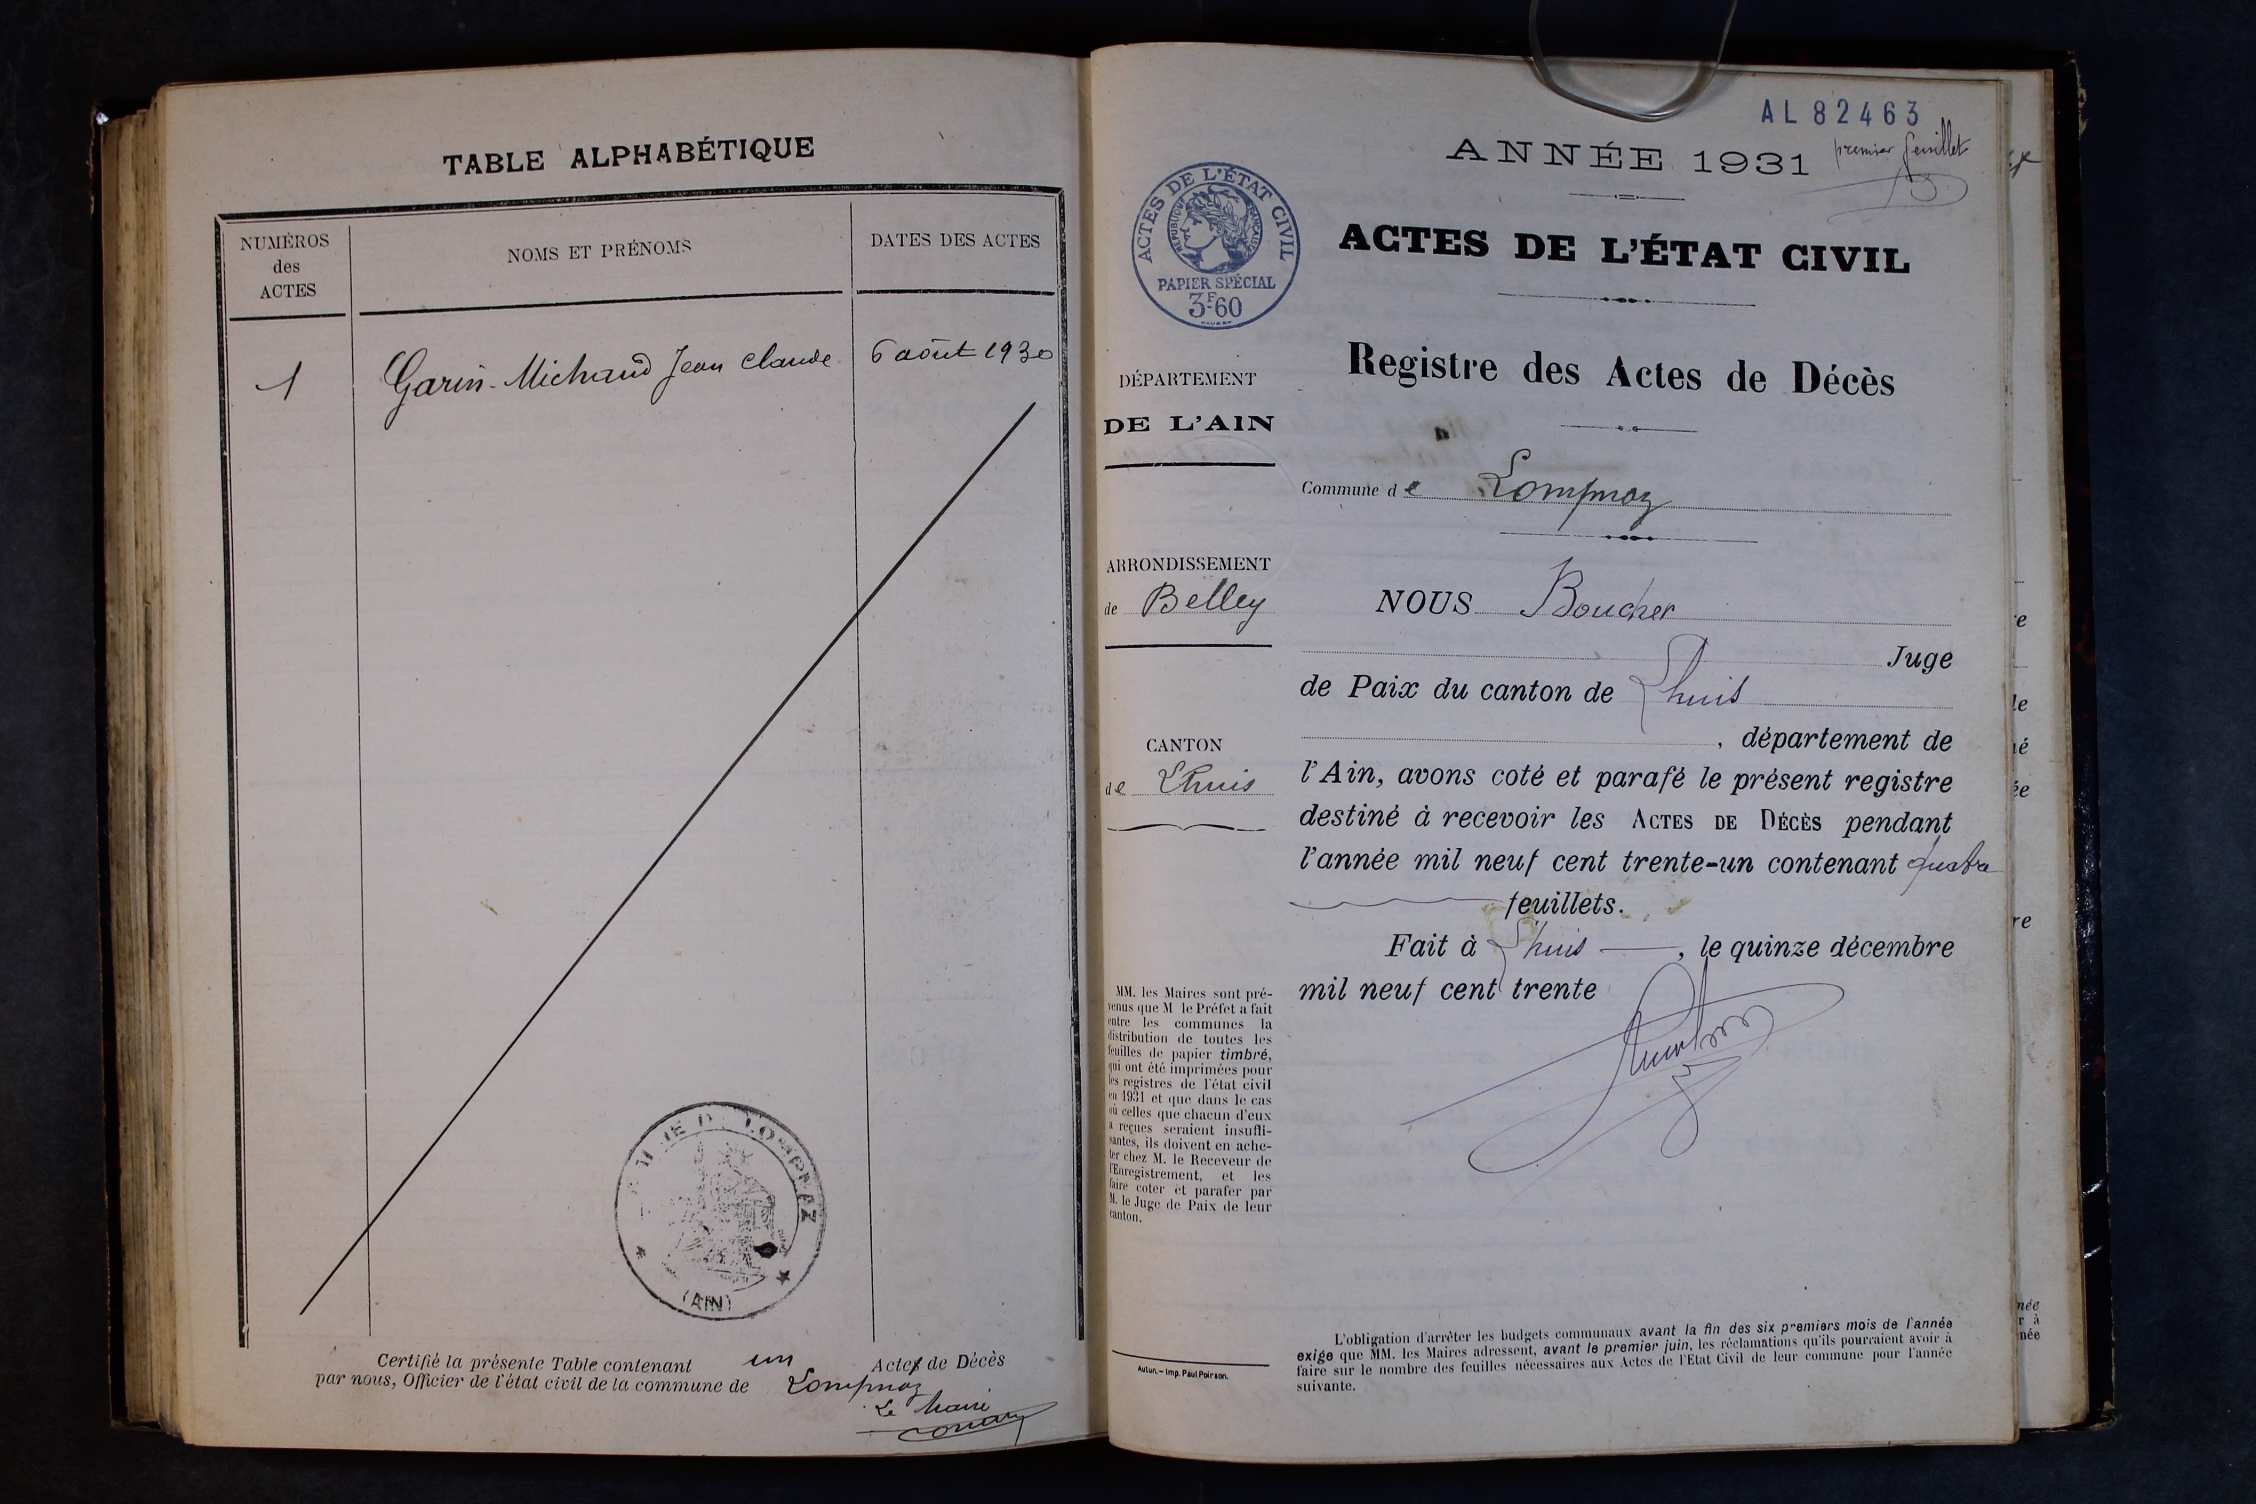 TABLE ALPHABÉTIQUE
NUMÉROS
des
ACTES
NOMS ET PRÉNOMS
DATES DES ACTES
1
Garin-Michaud Jean Claude
6 août 1930
MAIRIE DE LOMPNAZ
(AIN)
Certifié la présente Table contenant un Acte de Décès
par nous, Officier de l'état civil de la commune de Lompnaz
Le maire
AL 82463
premier feuillet
ANNÉE 1931
ACTES DE L'ÉTAT CIVIL
RÉPUBLIQUE FRANÇAISE
PAPIER SPÉCIAL
3F.60
ACTES DE L'ÉTAT CIVIL
Registre des Actes de Décès
DÉPARTEMENT
DE L'AIN
Commune de Lompnaz
ARRONDISSEMENT
de Belley
CANTON
de Lhuis
NOUS Boucher
Juge
de Paix du canton de Lhuis
, département de
l'Ain, avons coté et parafé le présent registre
destiné à recevoir les ACTES DE DÉCÈS pendant
l'année mil neuf cent trente-un contenant quatre
feuillets.
Fait à Lhuis, le quinze décembre
mil neuf cent trente
MM. les Maires sont pré-
venus que M le Préfet a fait
entre les communes la
distribution de toutes les
feuilles de papier timbré,
qui ont été imprimées pour
les registres de l'état civil
en 1931 et que dans le cas
où celles que chacun d'eux
a reçues seraient insuffi-
santes, ils doivent en ache-
ter chez M. le Receveur de
l'Enregistrement, et les
faire coter et parafer par
M. le Juge de Paix de leur
canton.
Autun. – Imp. Paul Poirson.
L'obligation d'arrêter les budgets communaux avant la fin des six premiers mois de l'année
exige que MM. les Maires adressent, avant le premier juin, les réclamations qu'ils pourraient avoir à
faire sur le nombre des feuilles nécessaires aux Actes de l'Etat Civil de leur commune pour l'année
suivante.